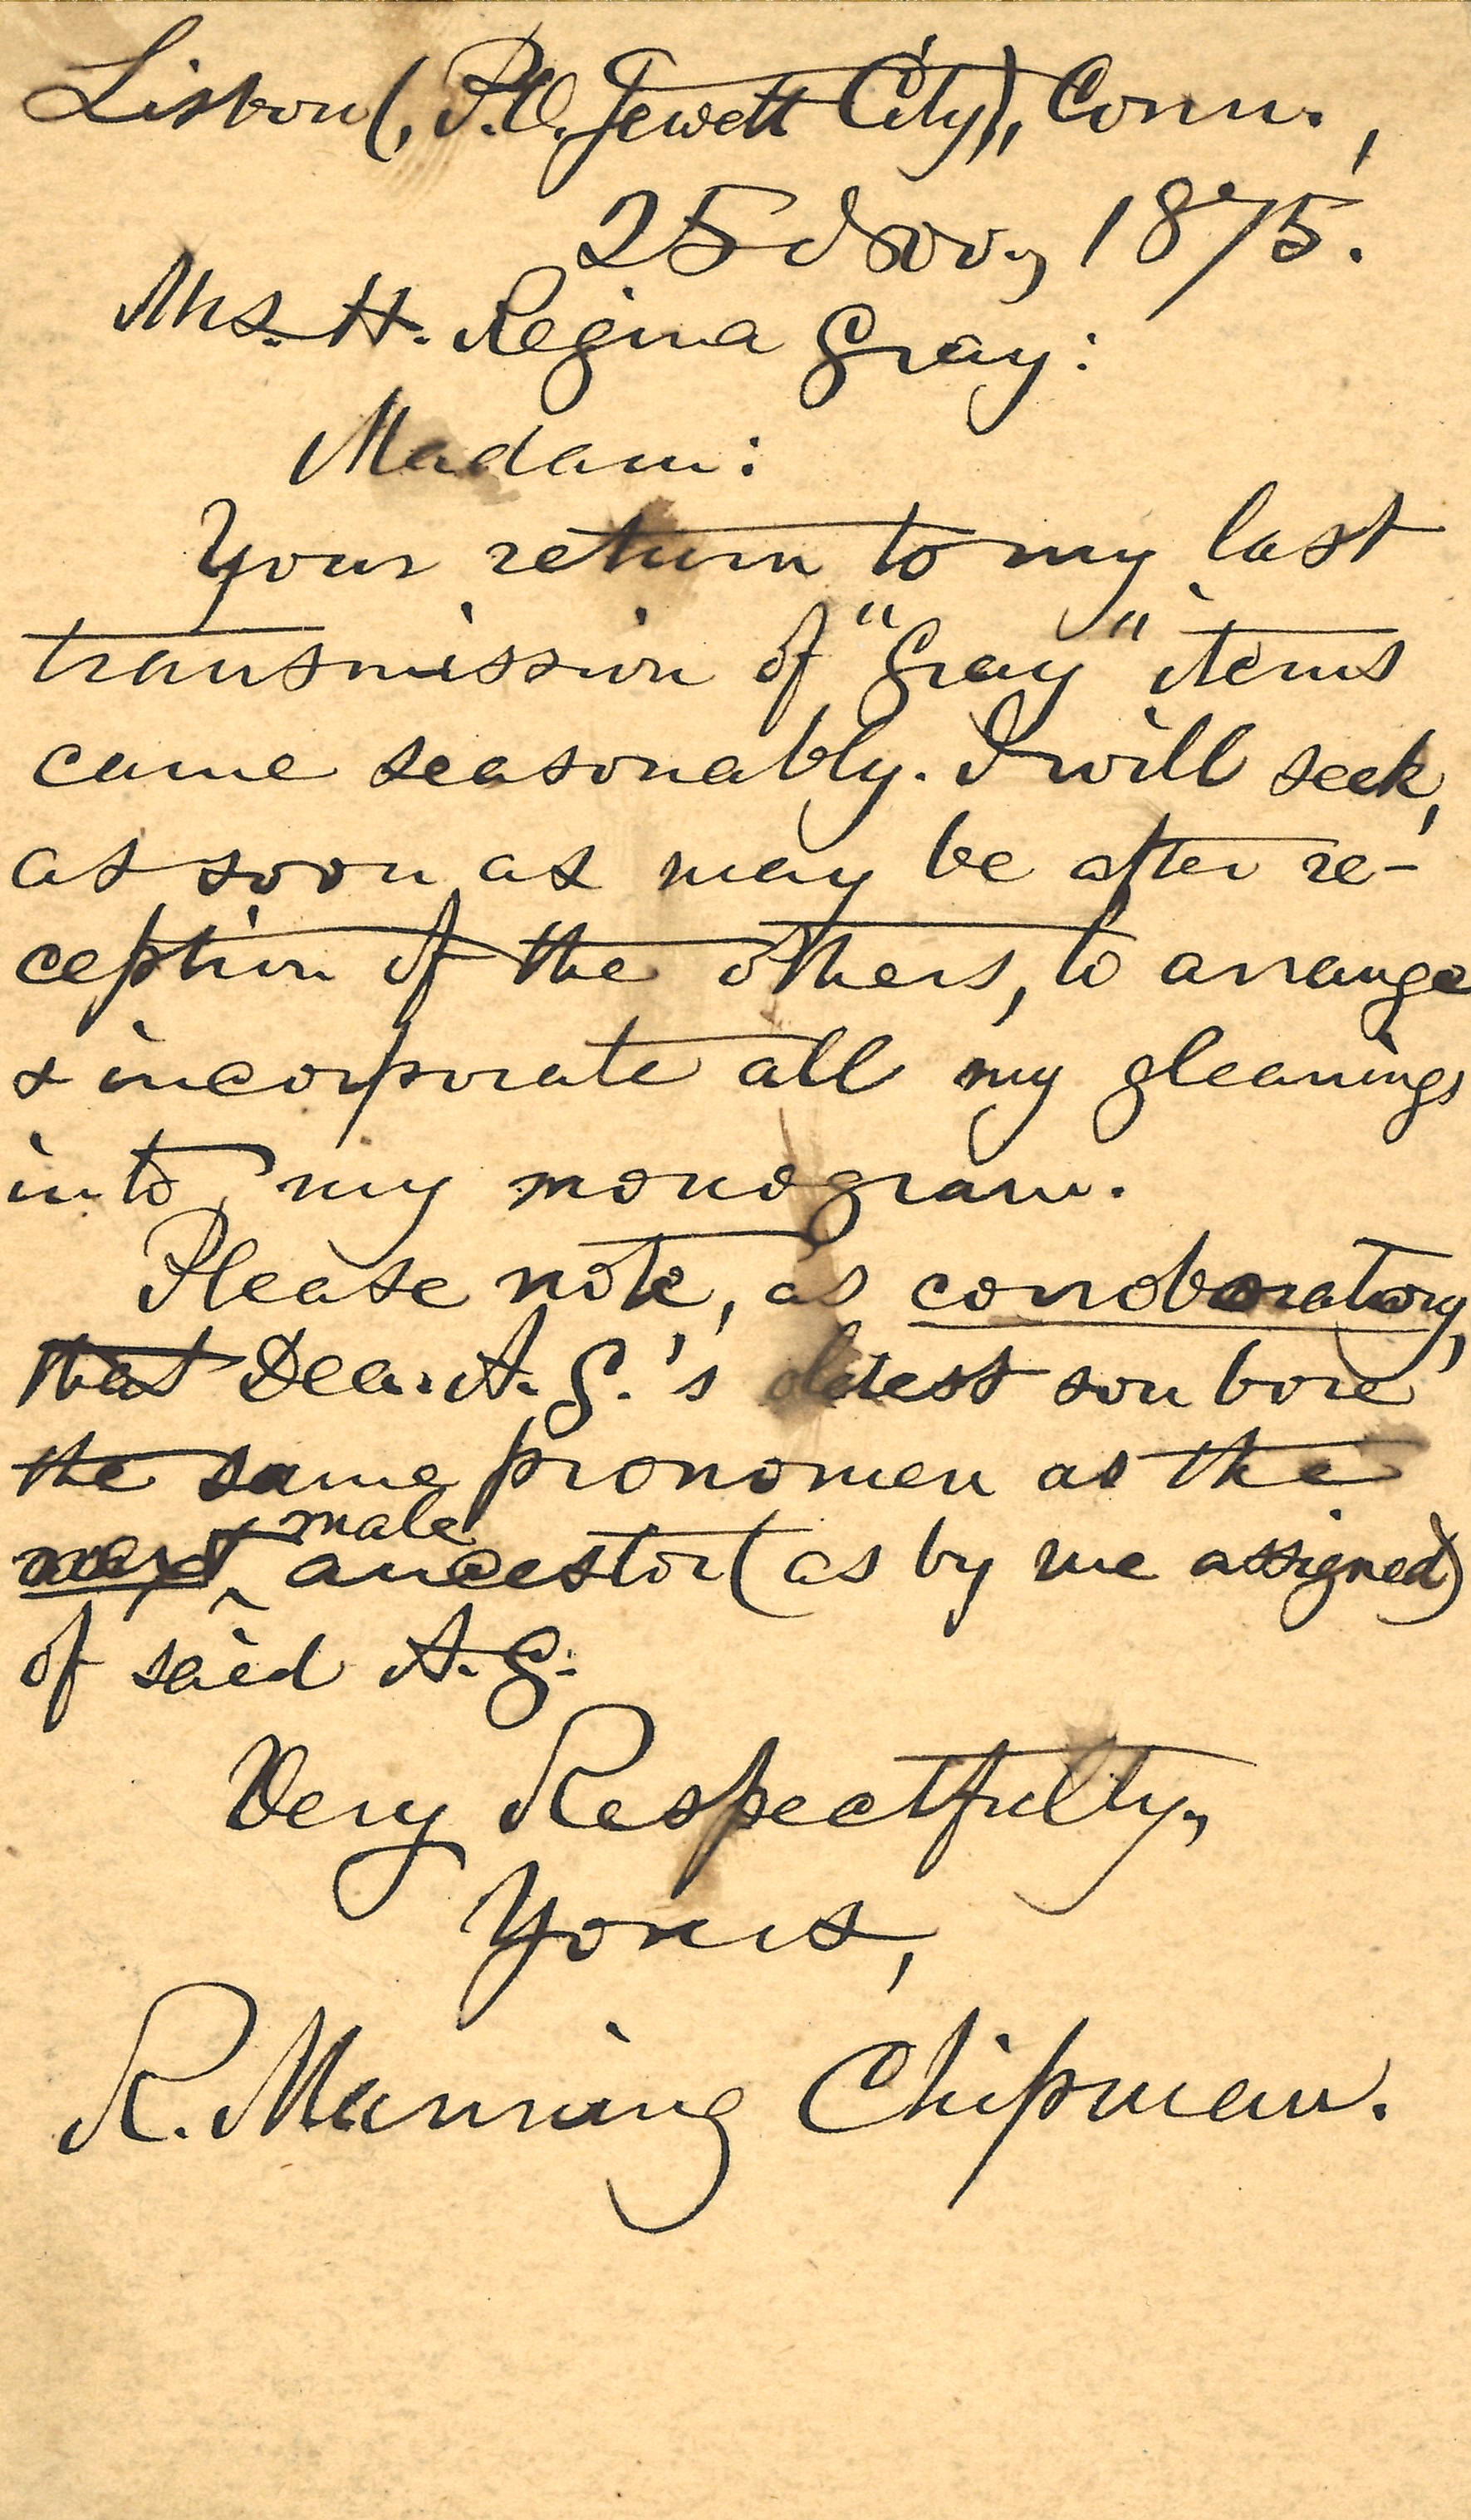 Lisbon (, P.O. Jewett City), Conn.,
25 Nov., 1875.
Mrs. H. Regina Gray:
Madam:
Your return to my last
transmission of "Gray" items
came seasonably. I will seek,
as soon as may be after re-
ception of the others, to arrange
& incorporate all my gleanings
into my monogram.
Please note, as corroboratory,
that Dea. A. G.'s oldest son bore
the same pronomen as the
male
next ^ ancestor (as by me assigned)
of said A. G.
Very Respectfully,
Yours,
R. Manning Chipman.